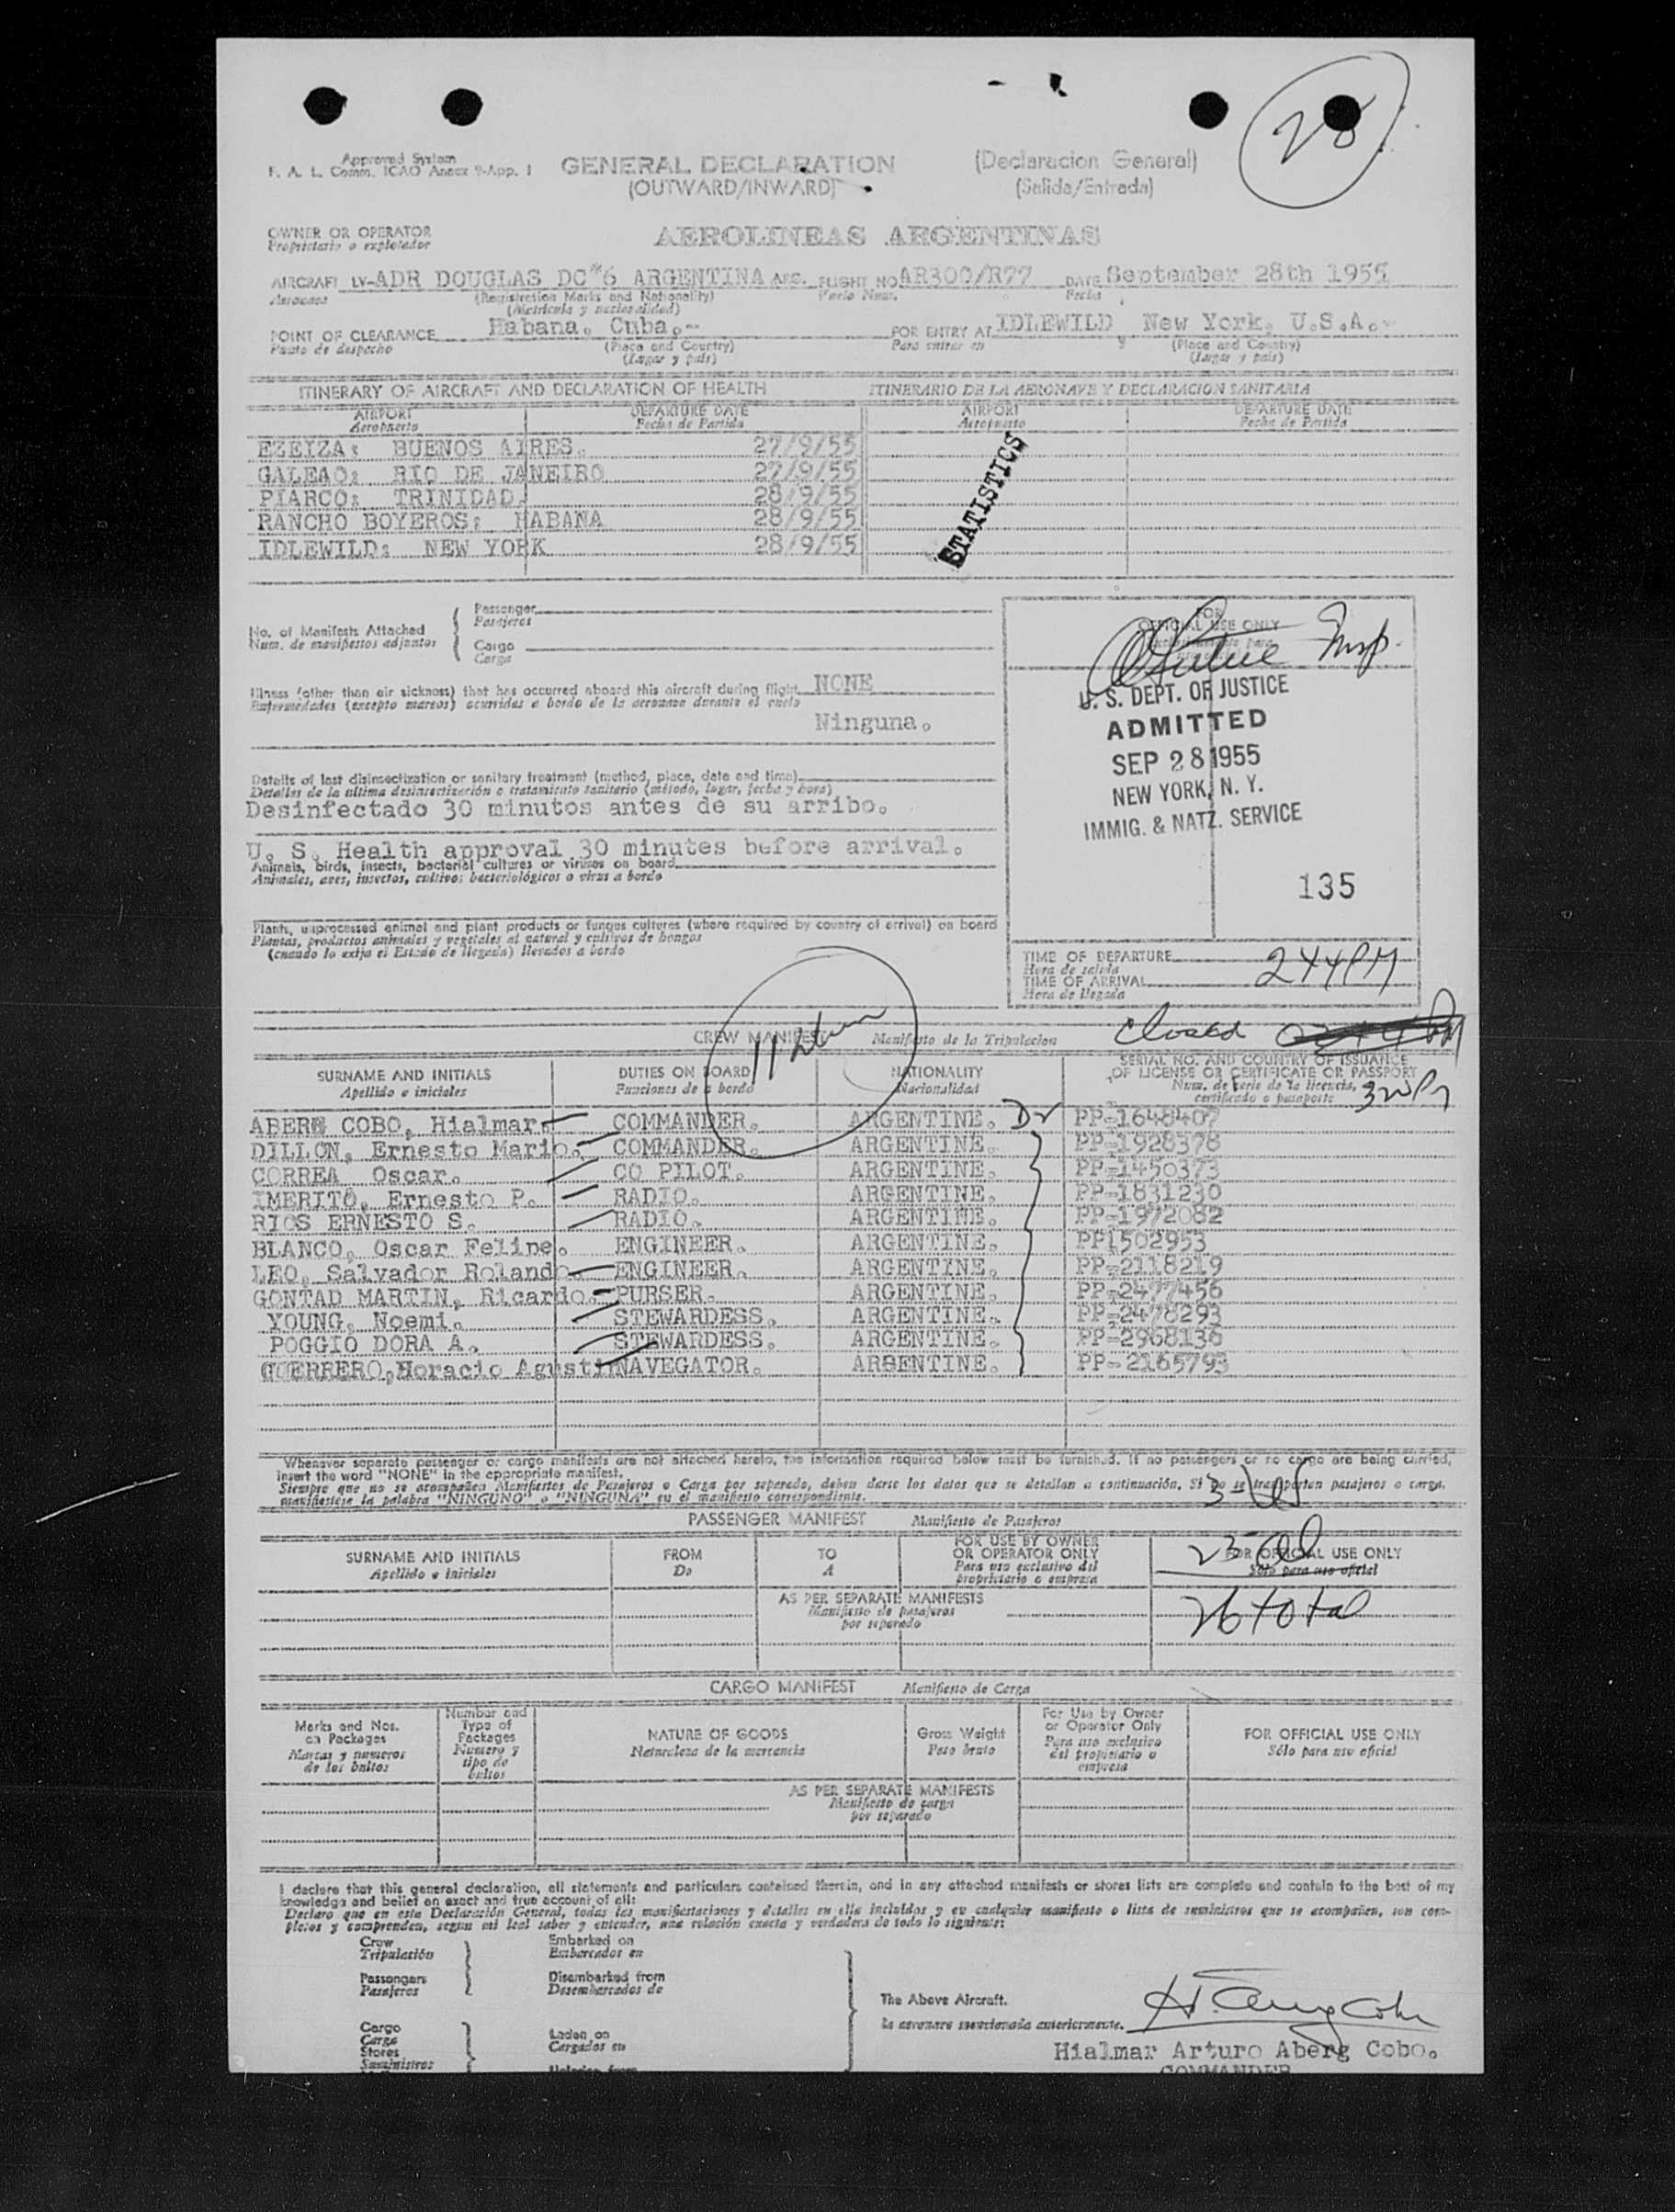 28
Approved System
F. A. L. Comm. ICAO Annex 9-App. 1
GENERAL DECLARATION (Declaracion General)
(OUTWARD/INWARD) (Salida/Entrada)
OWNER OR OPERATOR
Propietario o explotador
AEROLINEAS ARGENTINAS
AIRCRAFT LV-ADR DOUGLAS DC"6 ARGENTINA ARG. FLIGHT NO AR300/R77 DATE September 28th 1955
Aeronave (Registration Marks and Nationality) Vuelo Num. Fecha
(Matricula y nacionalidad)
POINT OF CLEARANCE Habana. Cuba.- FOR ENTRY AT IDLEWILD New York. U.S.A.-
Punto de despacho (Place and Country) Para entrar en (Place and Country)
(Lugar y país) (Lugar y país)
ITINERARY OF AIRCRAFT AND DECLARATION OF HEALTH ITINERARIO DE LA AERONAVE Y DECLARACION SANITARIA
AIRPORT DEPARTURE DATE AIRPORT DEPARTURE DATE
Aeropuerto Fecha de Partida Aeropuerto Fecha de Partida
EZEIZA: BUENOS AIRES. 27/9/55
GALEAO: RIO DE JANEIRO 27/9/55
PIARCO: TRINIDAD. 28/9/55
RANCHO BOYEROS: HABANA 28/9/55
IDLEWILD: NEW YORK 28/9/55
STATISTICS
No. of Manifests Attached
Num. de manifiestos adjuntos
Passenger
Pasajeros
Cargo
Carga
Illness (other than air sickness) that has occurred aboard this aircraft during flight NONE
Enfermedades (excepto mareos) ocurridas a bordo de la aeronave durante el vuelo
Ninguna.
Details of last disinsectization or sanitary treatment (method, place, date and time)
Detalles de la ultima desinsectización o tratamiento sanitario (método, lugar, fecha y hora)
Desinfectado 30 minutos antes de su arribo.
U. S. Health approval 30 minutes before arrival.
Animals, birds, insects, bacterial cultures or viruses on board
Animales, aves, insectos, cultivos bacteriológicos o virus a bordo
Plants, unprocessed animal and plant products or fungus cultures (where required by country of arrival) on board
Plantas, productos animales y vegetales al natural y cultivos de hongos
(cuando lo exija el Estado de llegada) llevados a bordo
FOR
OFFICIAL USE ONLY
Insp.
U. S. DEPT. OF JUSTICE
ADMITTED
SEP 28 1955
NEW YORK, N. Y.
IMMIG. & NATZ. SERVICE
135
TIME OF DEPARTURE
Hora de salida
244PM
TIME OF ARRIVAL
Hora de llegada
CREW MANIFEST Manifiesto de la Tripulacion
closed
SURNAME AND INITIALS DUTIES ON BOARD NATIONALITY SERIAL NO. AND COUNTRY OF ISSUANCE OF LICENSE OR CERTIFICATE OR PASSPORT
Apellido e iniciales Funciones de a bordo Nacionalidad Num. de serie de la licencia, certificado o pasaporte
ABERG COBO, Hialmar COMMANDER. ARGENTINE. PP-1648407
DILLON, Ernesto Mario. COMMANDER. ARGENTINE. PP-1928378
CORREA Oscar. CO PILOT. ARGENTINE. PP-1450373
IMERITO, Ernesto P. RADIO. ARGENTINE. PP-1831230
RIOS ERNESTO S. RADIO. ARGENTINE. PP-1972082
BLANCO, Oscar Felipe. ENGINEER. ARGENTINE. PP1502953
LEO, Salvador Rolando ENGINEER. ARGENTINE. PP-2118219
GONTAD MARTIN, Ricardo. PURSER. ARGENTINE. PP-2477456
YOUNG, Noemi. STEWARDESS. ARGENTINE. PP-2478293
POGGIO DORA A. STEWARDESS. ARGENTINE. PP-2968136
GUERRERO,Horacio Agustin NAVEGATOR. ARGENTINE. PP-2165793
Whenever separate passenger or cargo manifests are not attached hereto, the information required below must be furnished. If no passengers or no cargo are being carried,
insert the word "NONE" in the appropriate manifest.
Siempre que no se acompañen Manifiestos de Pasajeros o Carga por separado, deben darse los datos que se detallan a continuación. Si no se transporten pasajeros o carga,
manifiestese la palabra "NINGUNO" o "NINGUNA" en el manifiesto correspondiente.
PASSENGER MANIFEST Manifiesto de Pasajeros
SURNAME AND INITIALS FROM TO FOR USE BY OWNER OR OPERATOR ONLY FOR OFFICIAL USE ONLY
Apellido e iniciales De A Para uso exclusivo del propietario o empresa Sólo para uso oficial
AS PER SEPARATE MANIFESTS
Manifiesto de pasajeros
por separado
26 total
CARGO MANIFEST Manifiesto de Carga
Marks and Nos. on Packages Number and Type of Packages NATURE OF GOODS Gross Weight For Use by Owner or Operator Only FOR OFFICIAL USE ONLY
Marcas y numeros de los bultos Numero y tipo de bultos Naturaleza de la mercancia Peso bruto Para uso exclusivo del propietario o empresa Sólo para uso oficial
AS PER SEPARATE MANIFESTS
Manifiesto de carga
por separado
I declare that this general declaration, all statements and particulars contained therein, and in any attached manifests or stores lists are complete and contain to the best of my
knowledge and belief an exact and true account of all:
Declaro que en esta Declaración General, todas las manifestaciones y detalles en ella incluidos y en cualquier manifiesto o lista de suministros que se acompañen, son com-
pletos y comprenden, segun mi leal saber y entender, una relación exacta y verdadera de todo lo siguiente:
Crew Embarked on
Tripulación Embarcados en
Passengers Disembarked from
Pasajeros Desembarcados de
The Above Aircraft.
La aeronave mencionada anteriormente.
Cargo Laden on
Carga Cargados en
Stores
Suministros
Hialmar Arturo Aberg Cobo.
COMMANDER